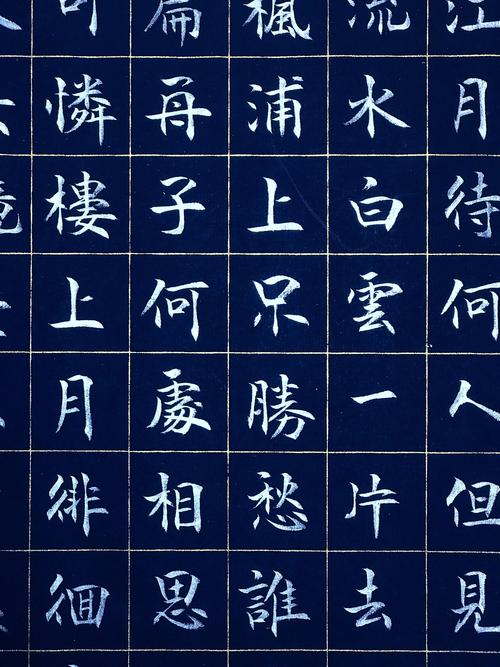 江月待何人但見
流水白雲一片去
楓浦上只勝愁誰
扁舟子何處相思
可憐樓上月徘徊